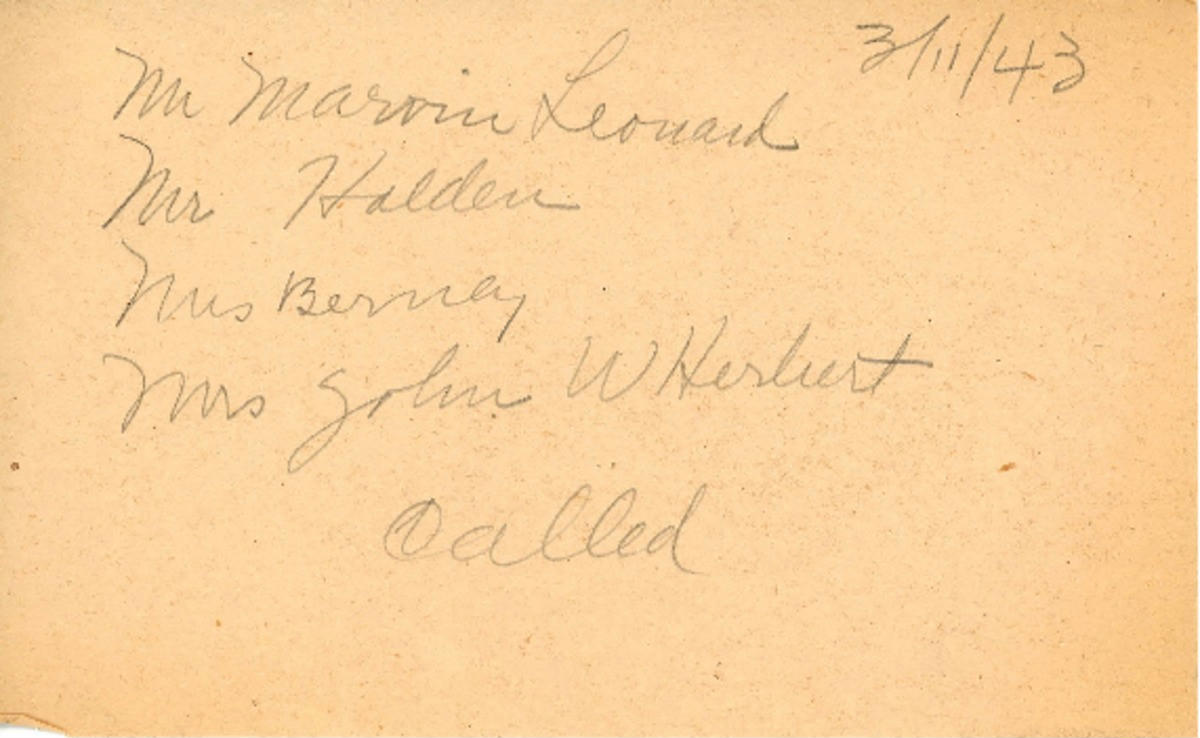 3/11/43
Mr Marvin Leonard
Mr Holden
Mrs Berney
Mrs John W Herbert
Called